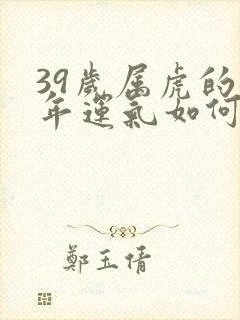 39歲属虎的
年運氣如何
鄭玉倩